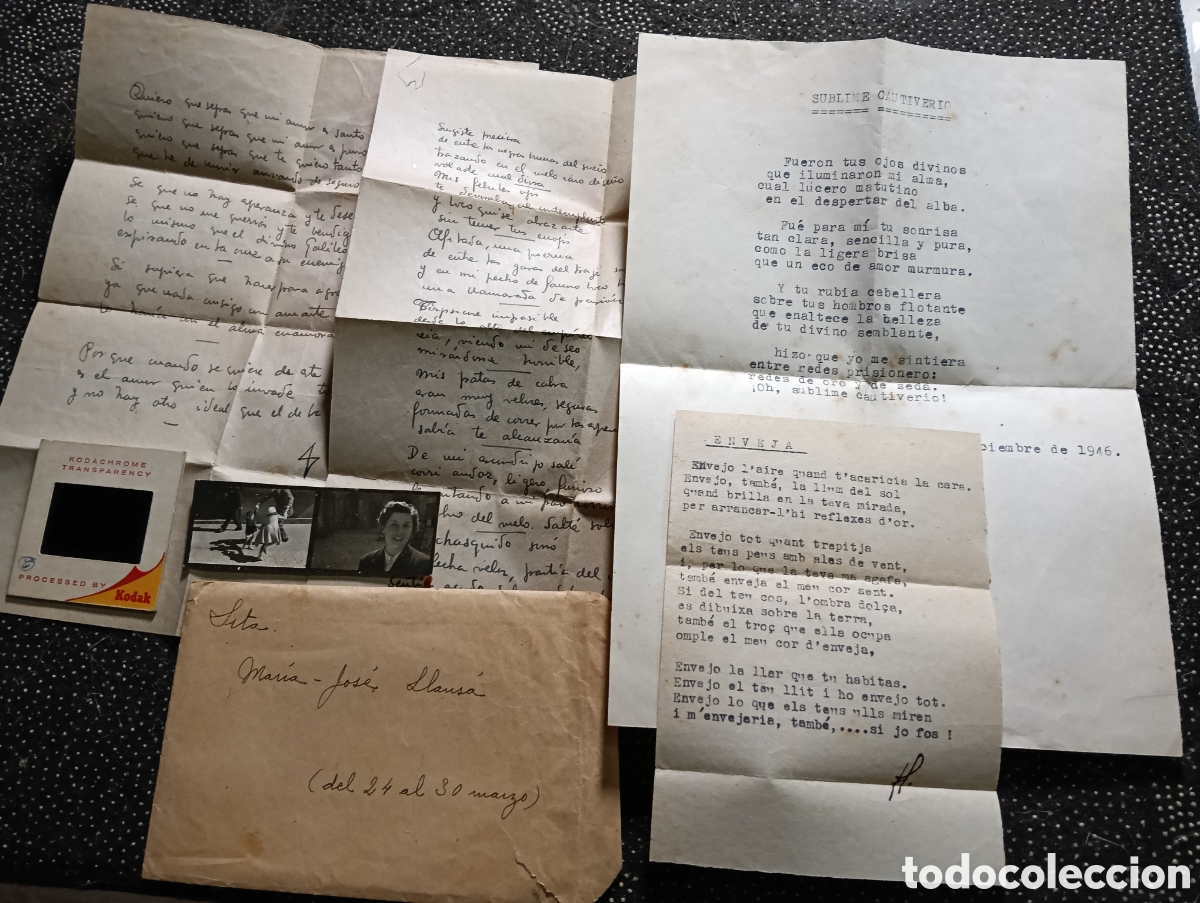 Quiero que sepas que mi amor es santo
quiero que sepas que mi amor es puro
quiero que sepas que te quiero tanto
que he de morir amando de seguro
Se que no hay esperanza y te dese
Se que no me querrás y te bendig
lo mismo que el divino Galileo
expirando en la cruz a su enemig
Si supiera que hacer para
ya que nada consigo con amarte
en el alma enamora
Porque cuando se quiere de
es el amor quien lo invade
y no hay otro ideal que el de
Surgiste preciosa
de entre las negras brumas del sueño
trazando en el velo raro diseño
volaste mal diosa
Mis febriles ojos
te devoraban al contemplarte
y loco quise abrazarte
sin temer tus enojos
Agitada, una pierna
de entre las gasas del traje
y en mi pecho de fauno loco
una llamarada de
Terpsícore imposible
desde lo alto del empíreo
reía, viendo mi deseo
mirándome horrible,
mis patas de cabra
eran muy veloces, seguras
formadas de correr por las
sabía te alcanzaría
De mi escondrijo salí
corrí audaz, ligero, furioso
a mi paso
del velo. Salté
chasquido sinó
flecha veloz, partía del
SUBLIME CAUTIVERIO
Fueron tus ojos divinos
que iluminaron mi alma,
cual lucero matutino
en el despertar del alba.
Fué para mí tu sonrisa
tan clara, sencilla y pura,
como la ligera brisa
que un eco de amor murmura.
Y tu rubia cabellera
sobre tus hombros flotante
que enaltece la belleza
de tu divino semblante,
hizo que yo me sintiera
entre redes prisionero:
redes de oro y de seda.
¡Oh, sublime cautiverio!
ciembre de 1946.
ENVEJA
Envejo l'aire quand t'acericia la cara.
Envejo, també, la llum del sol
quand brilla en la teva mirada,
per arrancar-l'hi reflexes d'or.
Envejo tot quant trepitja
els teus peus amb ales de vent,
i, per lo que la teva ma agafa,
també enveja el meu cor sent.
Si del teu cos, l'ombra dolça,
es dibuixa sobre la terra,
també el troç que ella ocupa
omple el meu cor d'enveja,
Envejo la llar que tu habitas.
Envejo el teu llit i ho envejo tot.
Envejo lo que els teus ulls miren
i m'envejeria, també,....si jo fos !
KODACHROME
TRANSPARENCY
PROCESSED BY
Kodak
Srta.
María-José Llausá
(del 24 al 30 marzo)
todocoleccion